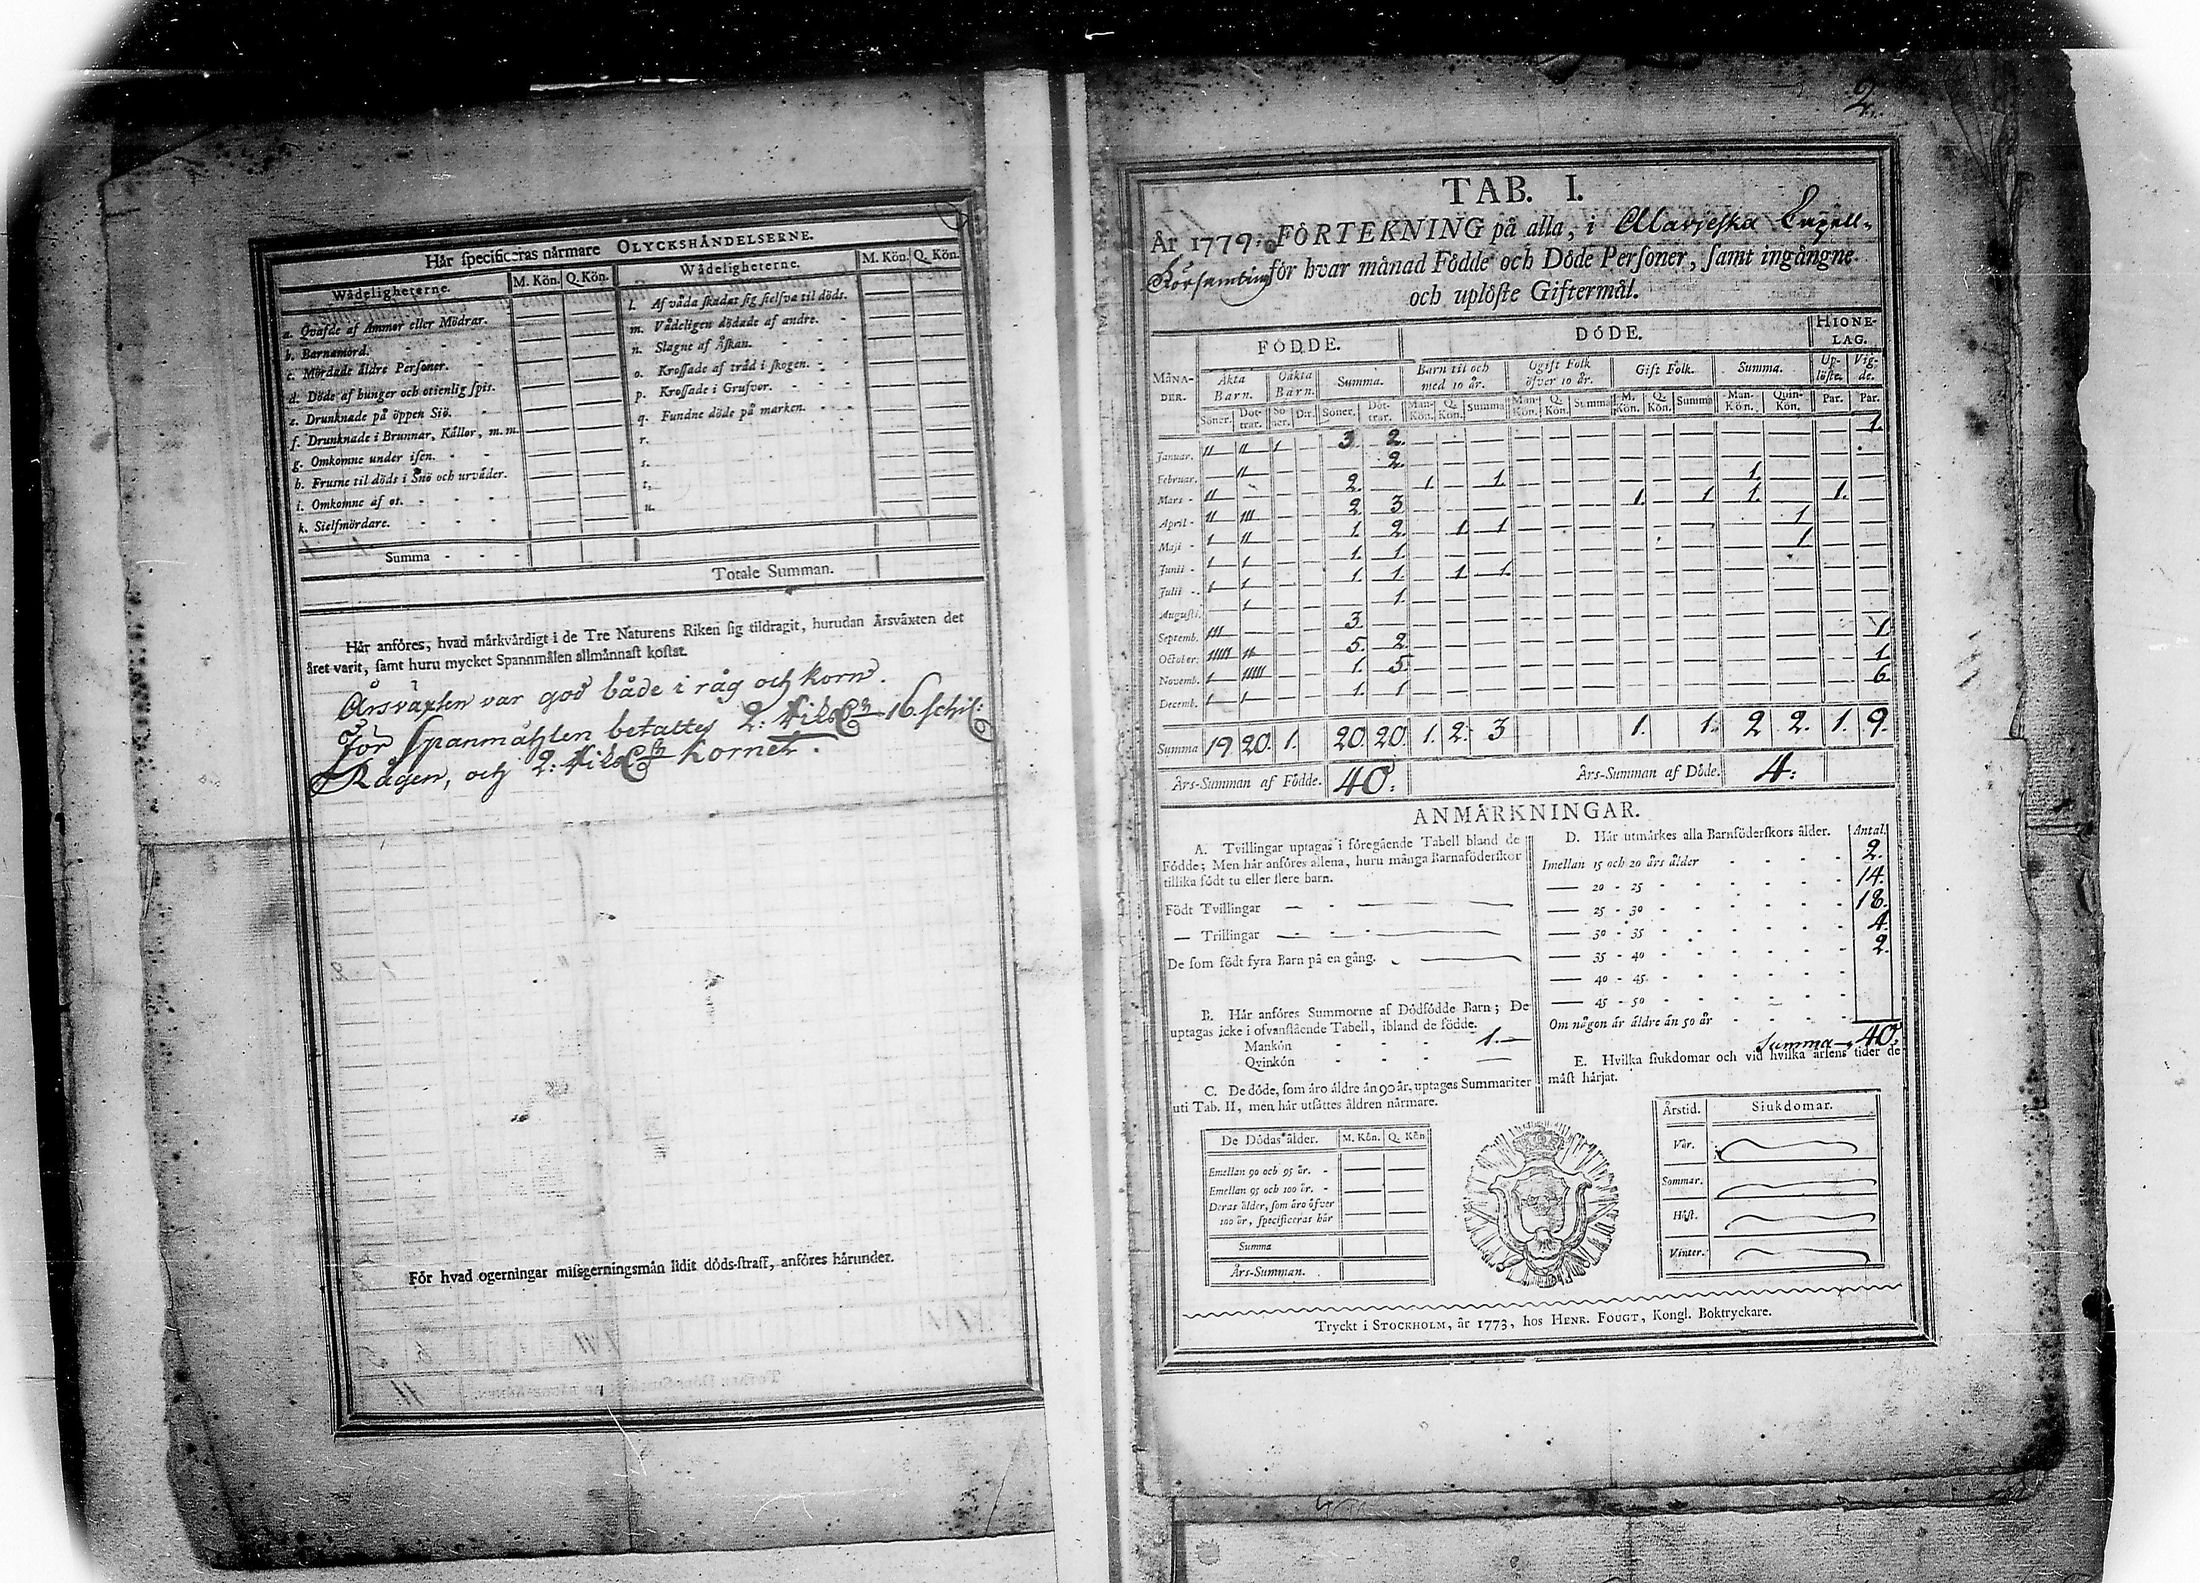 Hår specificeras nårmare OLYCKSHÅNDELSERNE.
Wådeligheterne. M. Kön. Q. Kön. Wådeligheterne. M. Kön. Q. Kön.
a. Qvafde af Ammor eller Mödrar. — — l. Af våda skadat sig sielfva til döds. — —
b. Barnamord. — — m. Vådeligen dödade af andre. — —
c. Mördade åldre Personer. — — n. Slagne af Åskan. — —
d. Döde af hunger och otienlig spis. — — o. Krossade af tråd i skogen. — —
e. Drunknade på öppen Siö. — — p. Krossade i Grufvor. — —
f. Drunknade i Brunnar, Kållor, m. m. — — q. Fundne döde på marken. — —
g. Omkomne under isen. — — r. — —
h. Frusne til döds i Snö och urvåder. — — s. — —
i. Omkomne af os. — — t. — —
k. Sielfmördare. — — u. — —
Summa
Totale Summan.
Hår anföres, hvad mårkvårdigt i de Tre Naturens Riken sig tildragit, hurudan Årsväxten det
året varit, samt huru mycket Spannmålen allmånnast kostat.
Årsväxten var god både i råg och korn.
För Spanmåhlen betaltes 2: 16 schil:
Rågen, och 2: Kornet.
För hvad ogerningar missgerningsmån lidit döds-straff, anföres hårunder.
2.
TAB. I.
År 1779. FÖRTEKNING på alla, i
för hvar månad Födde och Döde Personer, samt ingångne
och uplöste Giftermål.
MÅNA-DER. FÖDDE. DÖDE. HIONE-LAG.
Åkta Barn. Oåkta Barn. Summa. Barn til och med 10 år. Ogift Folk öfver 10 år. Gift Folk. Summa. Up-löste. Vig-de.
Söner. Dot-trar. Sö-ner. D:r. Söner. Döt-trar. Man-Kön. Q. Kön. Summa Man-Kön. Q. Kön. Summa M. Kön. Q. Kön. Summa Man-Kön. Quin-Kön. Par. Par.
Januar. 11 11 1 3 2. 1.
Februar. 11 2.
Mars 11 2. 1. 1. 1.
April 11 111 2 3 1. 1 1. 1.
Maji 1 11 1. 2. 1 1 1
Junii 1 1 1. 1. 1
Julii 1 1 1. 1. 1 1.
Augusti. 1 1.
Septemb. 111 3. 1
October. 11111 11 5. 2. 1
Novemb. 1 11111 1. 5. 6
Decemb. 1 1 1. 1
Summa 19 20. 1. 20. 20. 1. 2. 3 1. 1. 2 2. 1. 9.
Års-Summan af Födde. 40. Års-Summan af Döde. 4.
ANMÅRKNINGAR.
A. Tvillingar uptagas i föregående Tabell bland de
Födde; Men hår anföres allena, huru många Barnaföderskor
tillika födt tu eller flere barn.
Födt Tvillingar —
— Trillingar —
De som födt fyra Barn på en gång. —
B. Hår anföres Summorne af Dödfödde Barn; De
uptagas icke i ofvanstående Tabell, ibland de födde.
Mankön 1. —
Qvinkön —
C. De döde, som åro åldre ån 90 år, uptagas Summariter
uti Tab. II, men hår utsåttes åldren nårmare.
De Dödas ålder. M. Kön. Q. Kön
Emellan 90 och 95 år. — —
Emellan 95 och 100 år. — —
Deras ålder, som åro öfver
100 år, specificeras hår — —
Summa
Års-Summan.
D. Hår utmårkes alla Barnföderskors ålder. Antal.
Imellan 15 och 20 års ålder 2.
— 20 - 25 14.
— 25 - 30 18.
— 30 - 35 4.
— 35 - 40 2.
— 40 - 45
— 45 - 50
Om någon år åldre ån 50 år
Summa — 40.
E. Hvilka siukdomar och vid hvilka årsens tider de
måst hårjat.
Årstid. Siukdomar.
Vår.
Sommar.
Höst.
Vinter.
Tryckt i STOCKHOLM, år 1773, hos HENR. FOUGT, Kongl. Boktryckare.